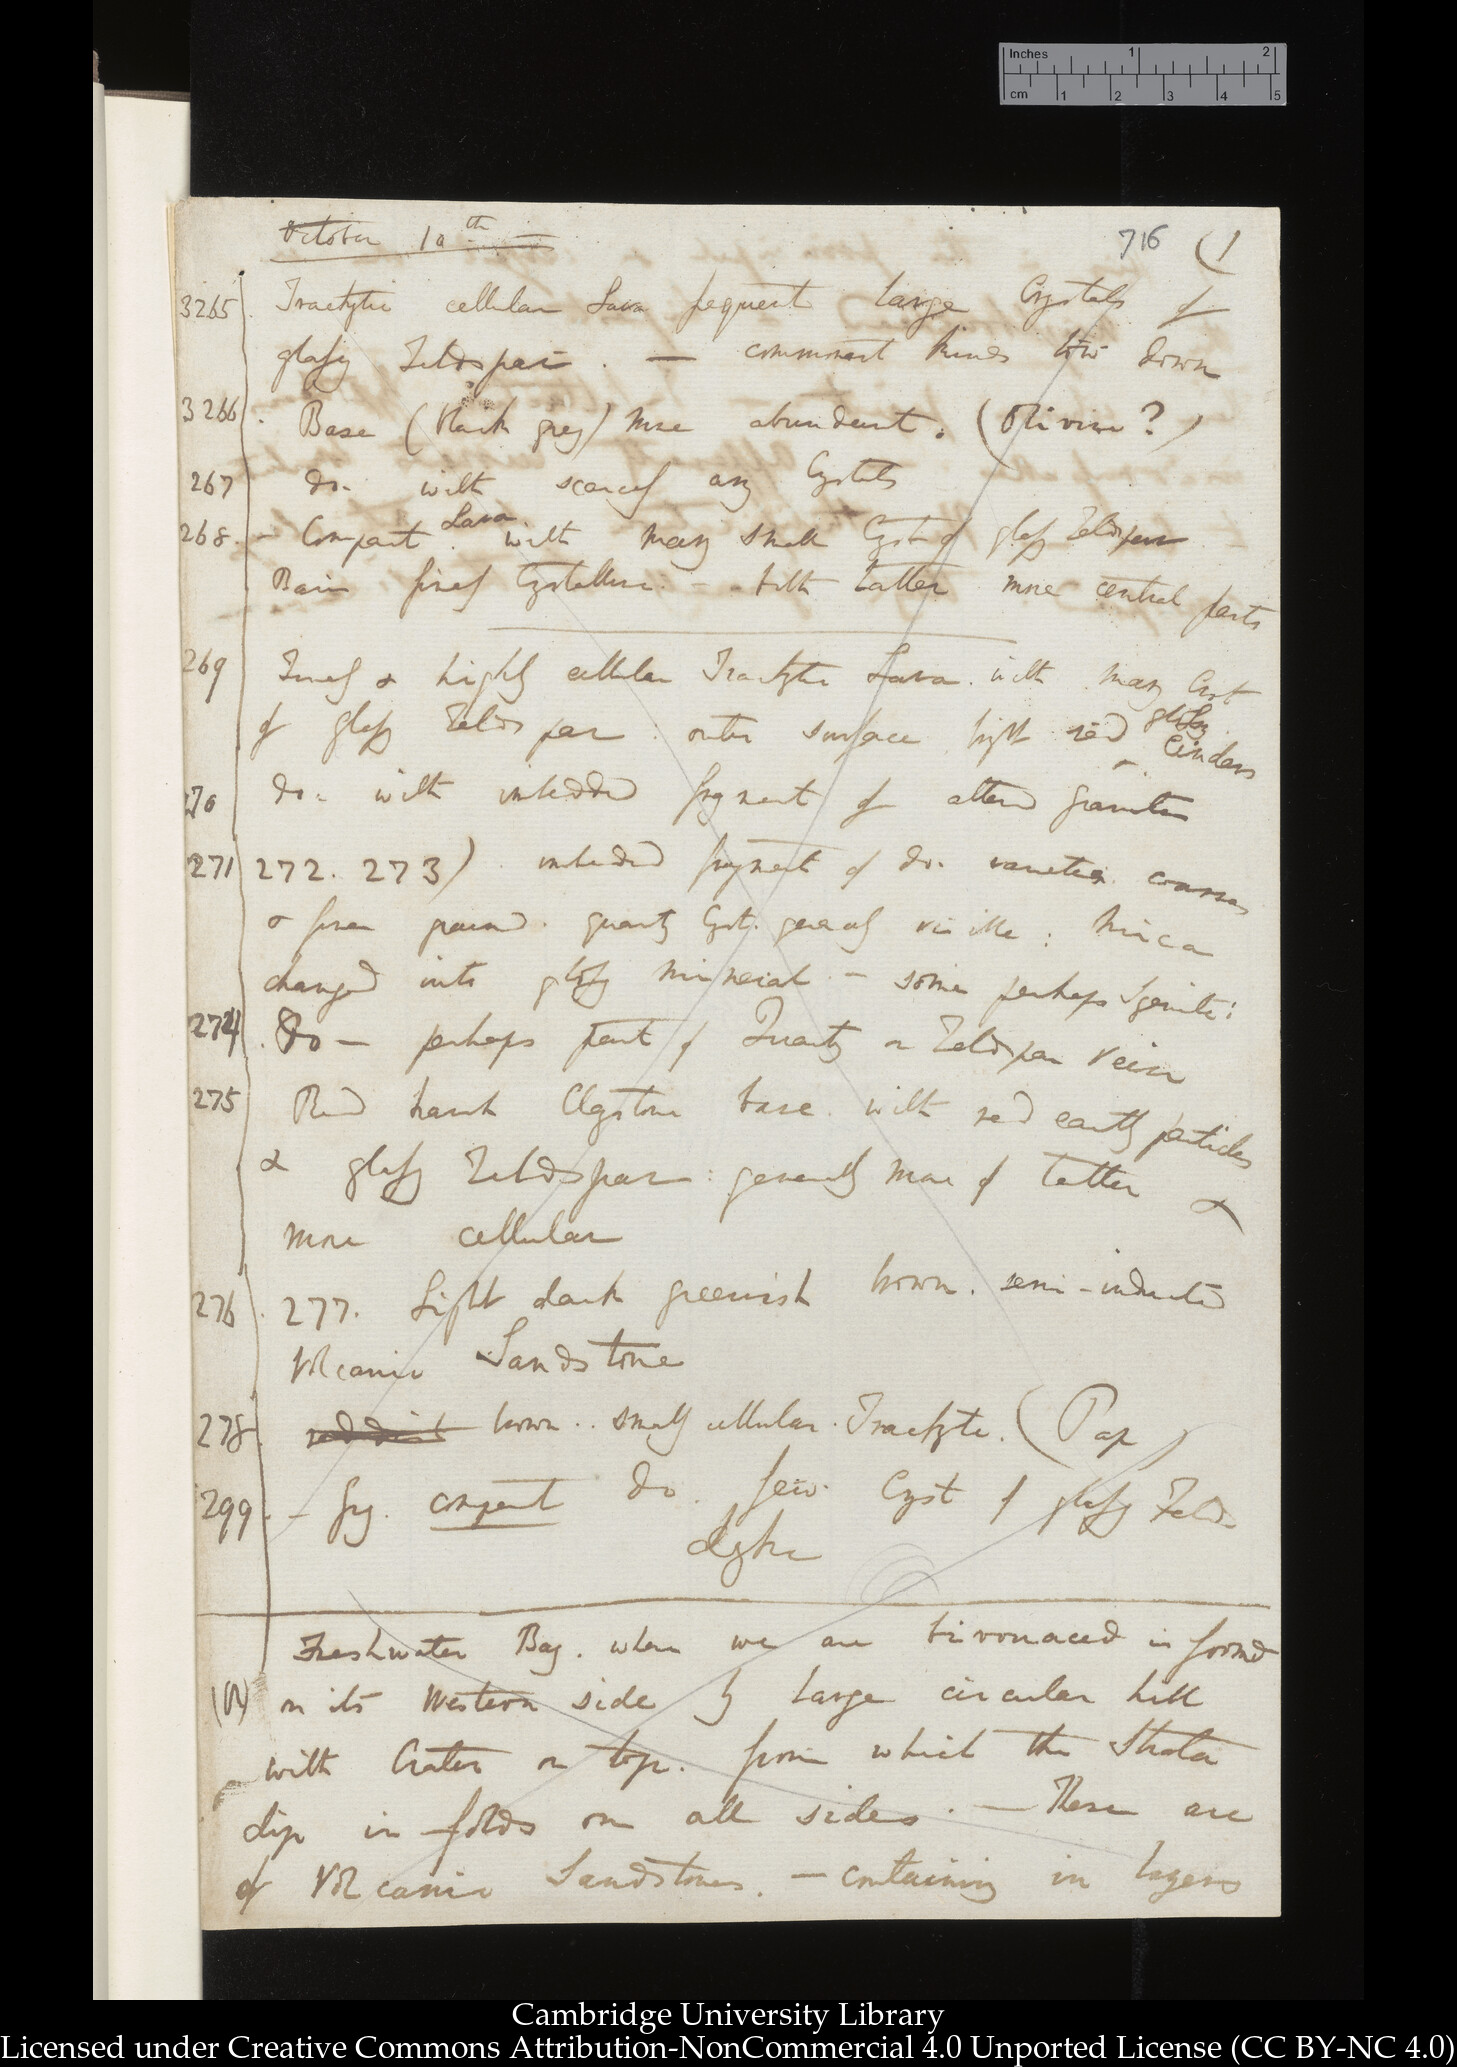 Inches 1 2
cm 1 2 3 4 5
October 10th
716 (1
3265. Trachytic cellular Lava frequent large Crystals of
glassy Feldspar. — commonest kinds low down
3266. Base (blackish grey) more abundant. (Olivine?)
267 do. with scarcely any Crystals
268. – Compact Lava. with many small Cryst of glassy Feldspar
Basis finely Crystalline. – both latter more central parts
269 Finely & highly cellular Trachytic Lava. with many Cryst
of glassy Feldspar: outer surface light red glossy
Cinders
270 do. with imbedded fragment of altered granites
271 272. 273) imbedded fragment of do. varieties coarser
& finer grained. quartz Cryst. generally visible: Mica
changed into glossy mineral – some perhaps Syenite:
274. Do – perhaps part of Quartz or Feldspar Vein
275 Red harsh Claystone base with red earthy particles
& glassy Feldspar: generally more of latter &
more cellular
276. 277. Light dark greenish brown. semi-indurated
Volcanic Sandstone
278. reddish brown.. small cellular. Trachyte. (Pap)
299. – grey. compact do. few. Cryst of glassy Feld.
Dyke
Freshwater Bay. where we are bivouaced is formed
on its Western side by large circular hill
with Crater on top. from which the Strata
dip in folds on all sides. — These are
of Volcanic Sandstones. – containing in layers
Cambridge University Library
Licensed under Creative Commons Attribution-NonCommercial 4.0 Unported License (CC BY-NC 4.0)